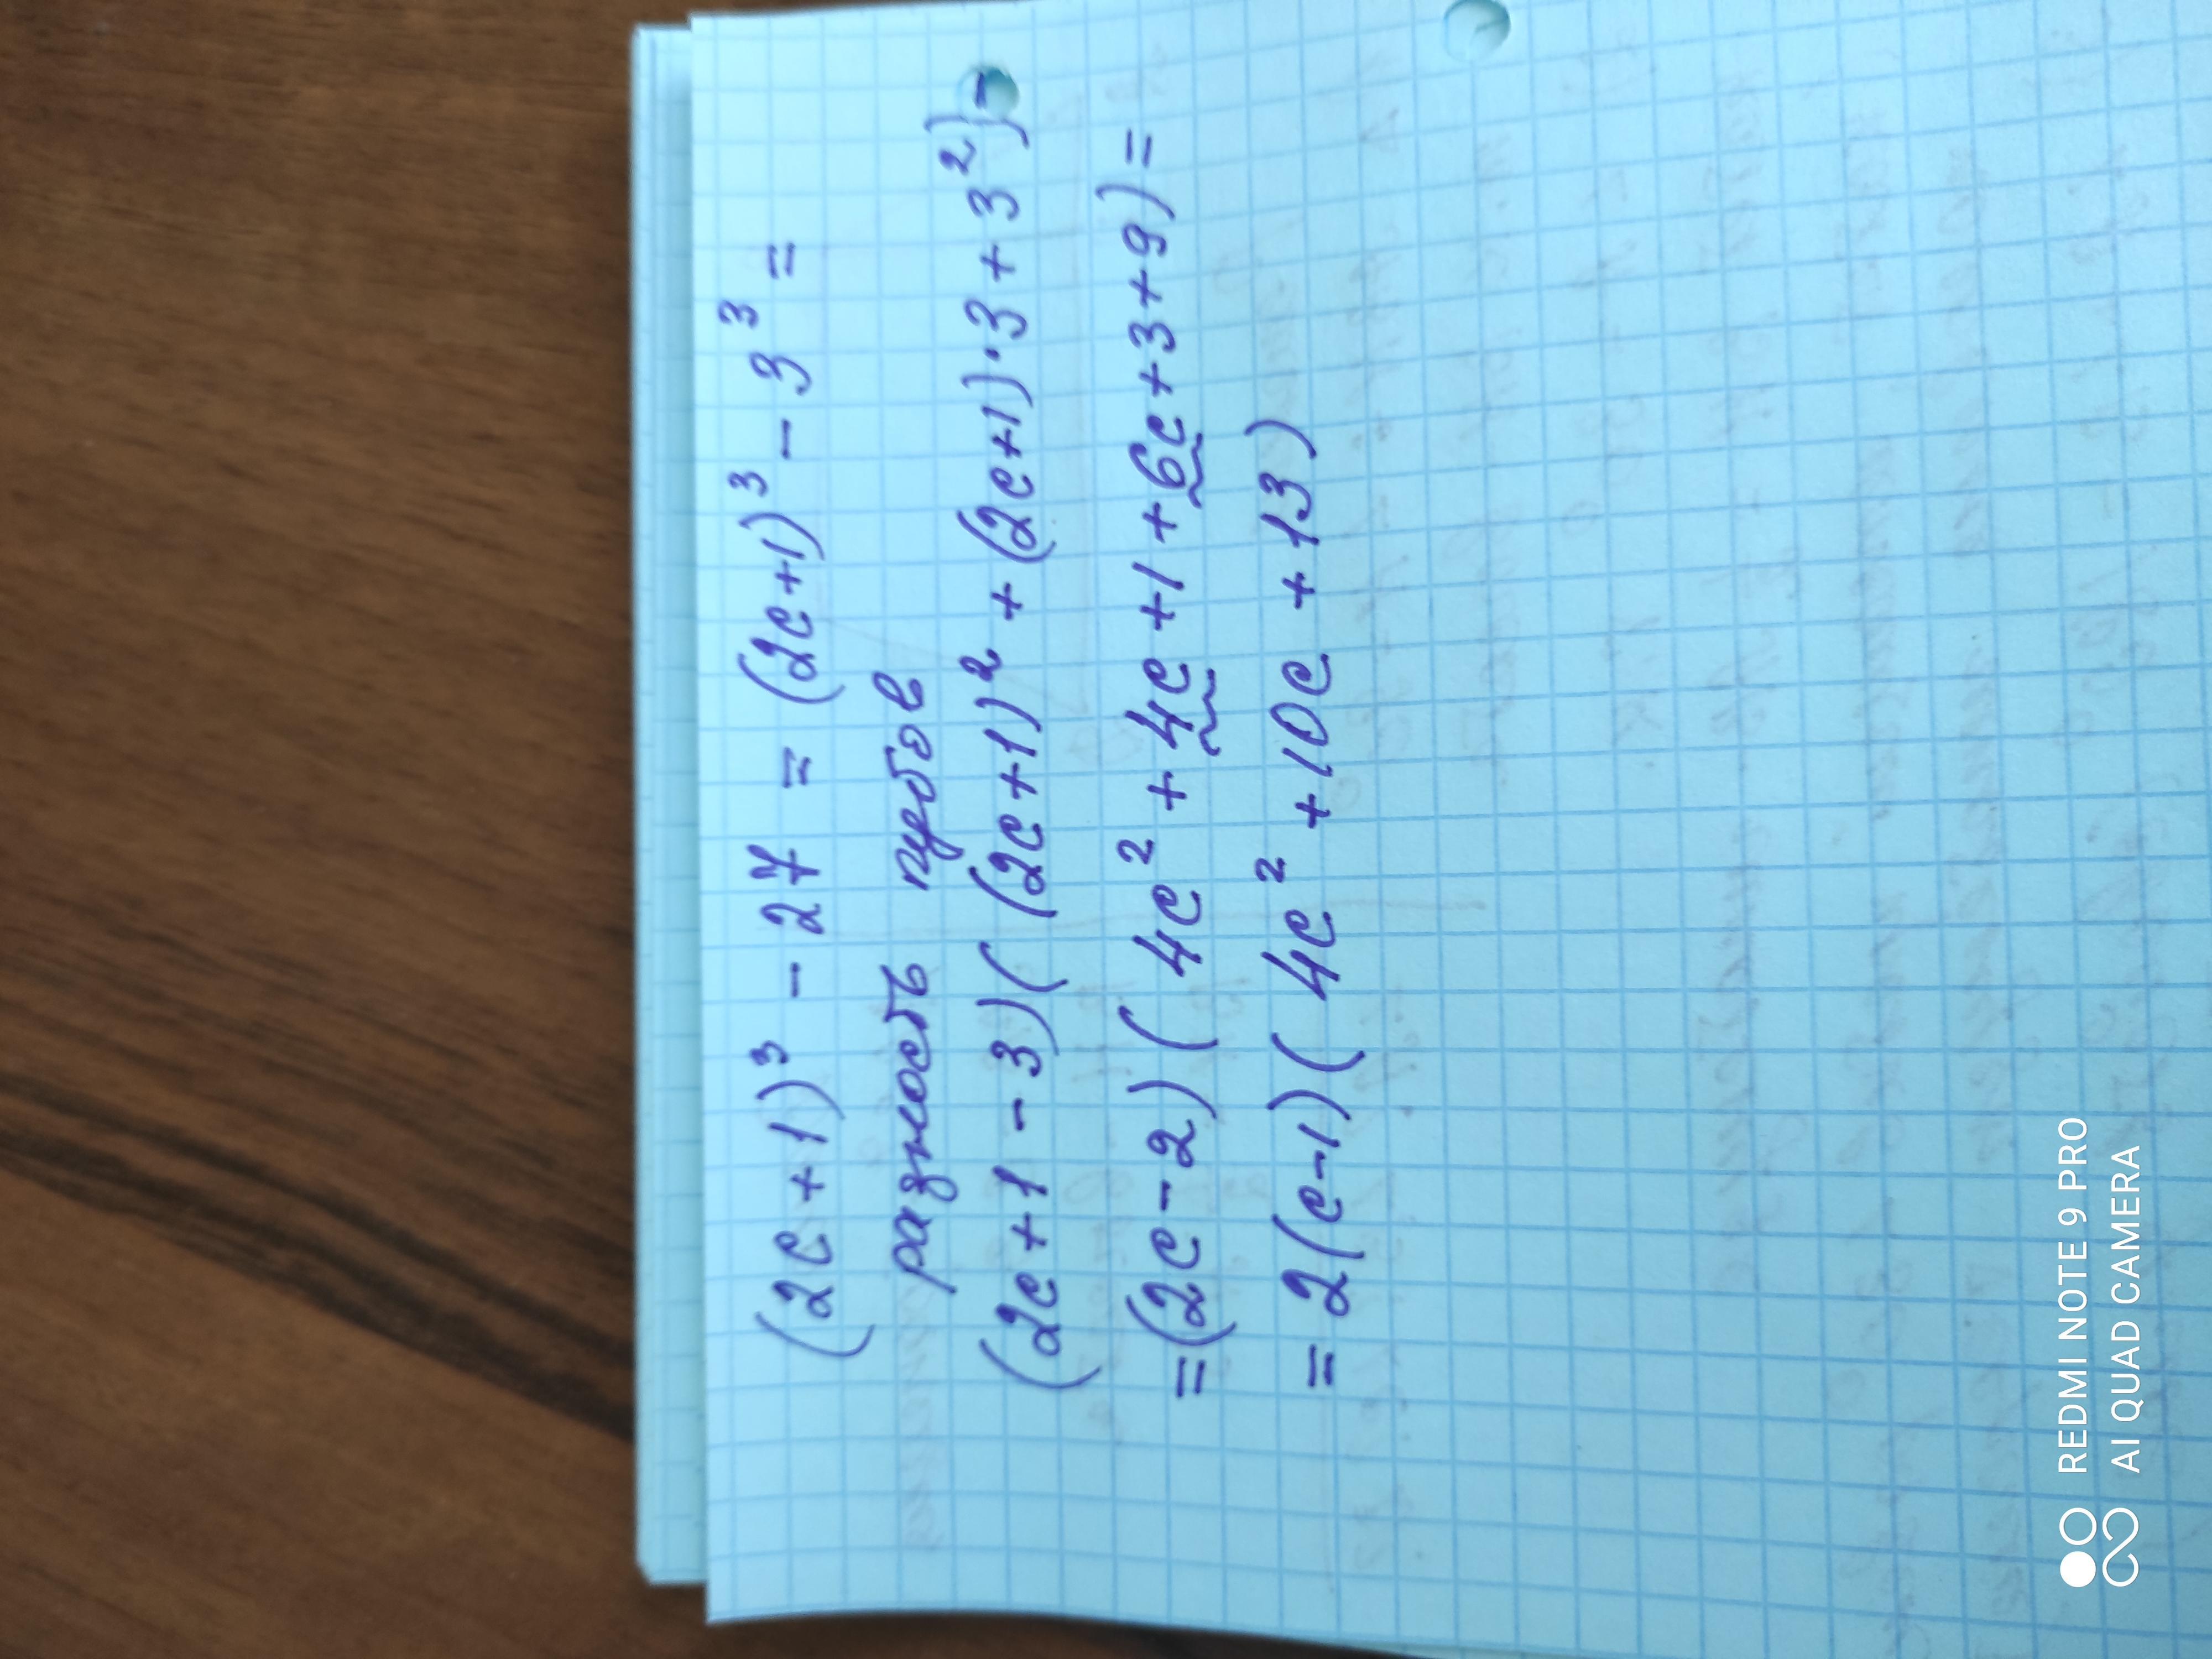 (2c+1)³ - 27 = (2c+1)³ - 3³ =
разность кубов
(2c+1-3)((2c+1)² + (2c+1)·3 + 3²) =
=(2c-2)(4c² + 4c + 1 + 6c + 3 + 9) =
= 2(c-1)(4c² + 10c + 13)
REDMI NOTE 9 PRO
AI QUAD CAMERA